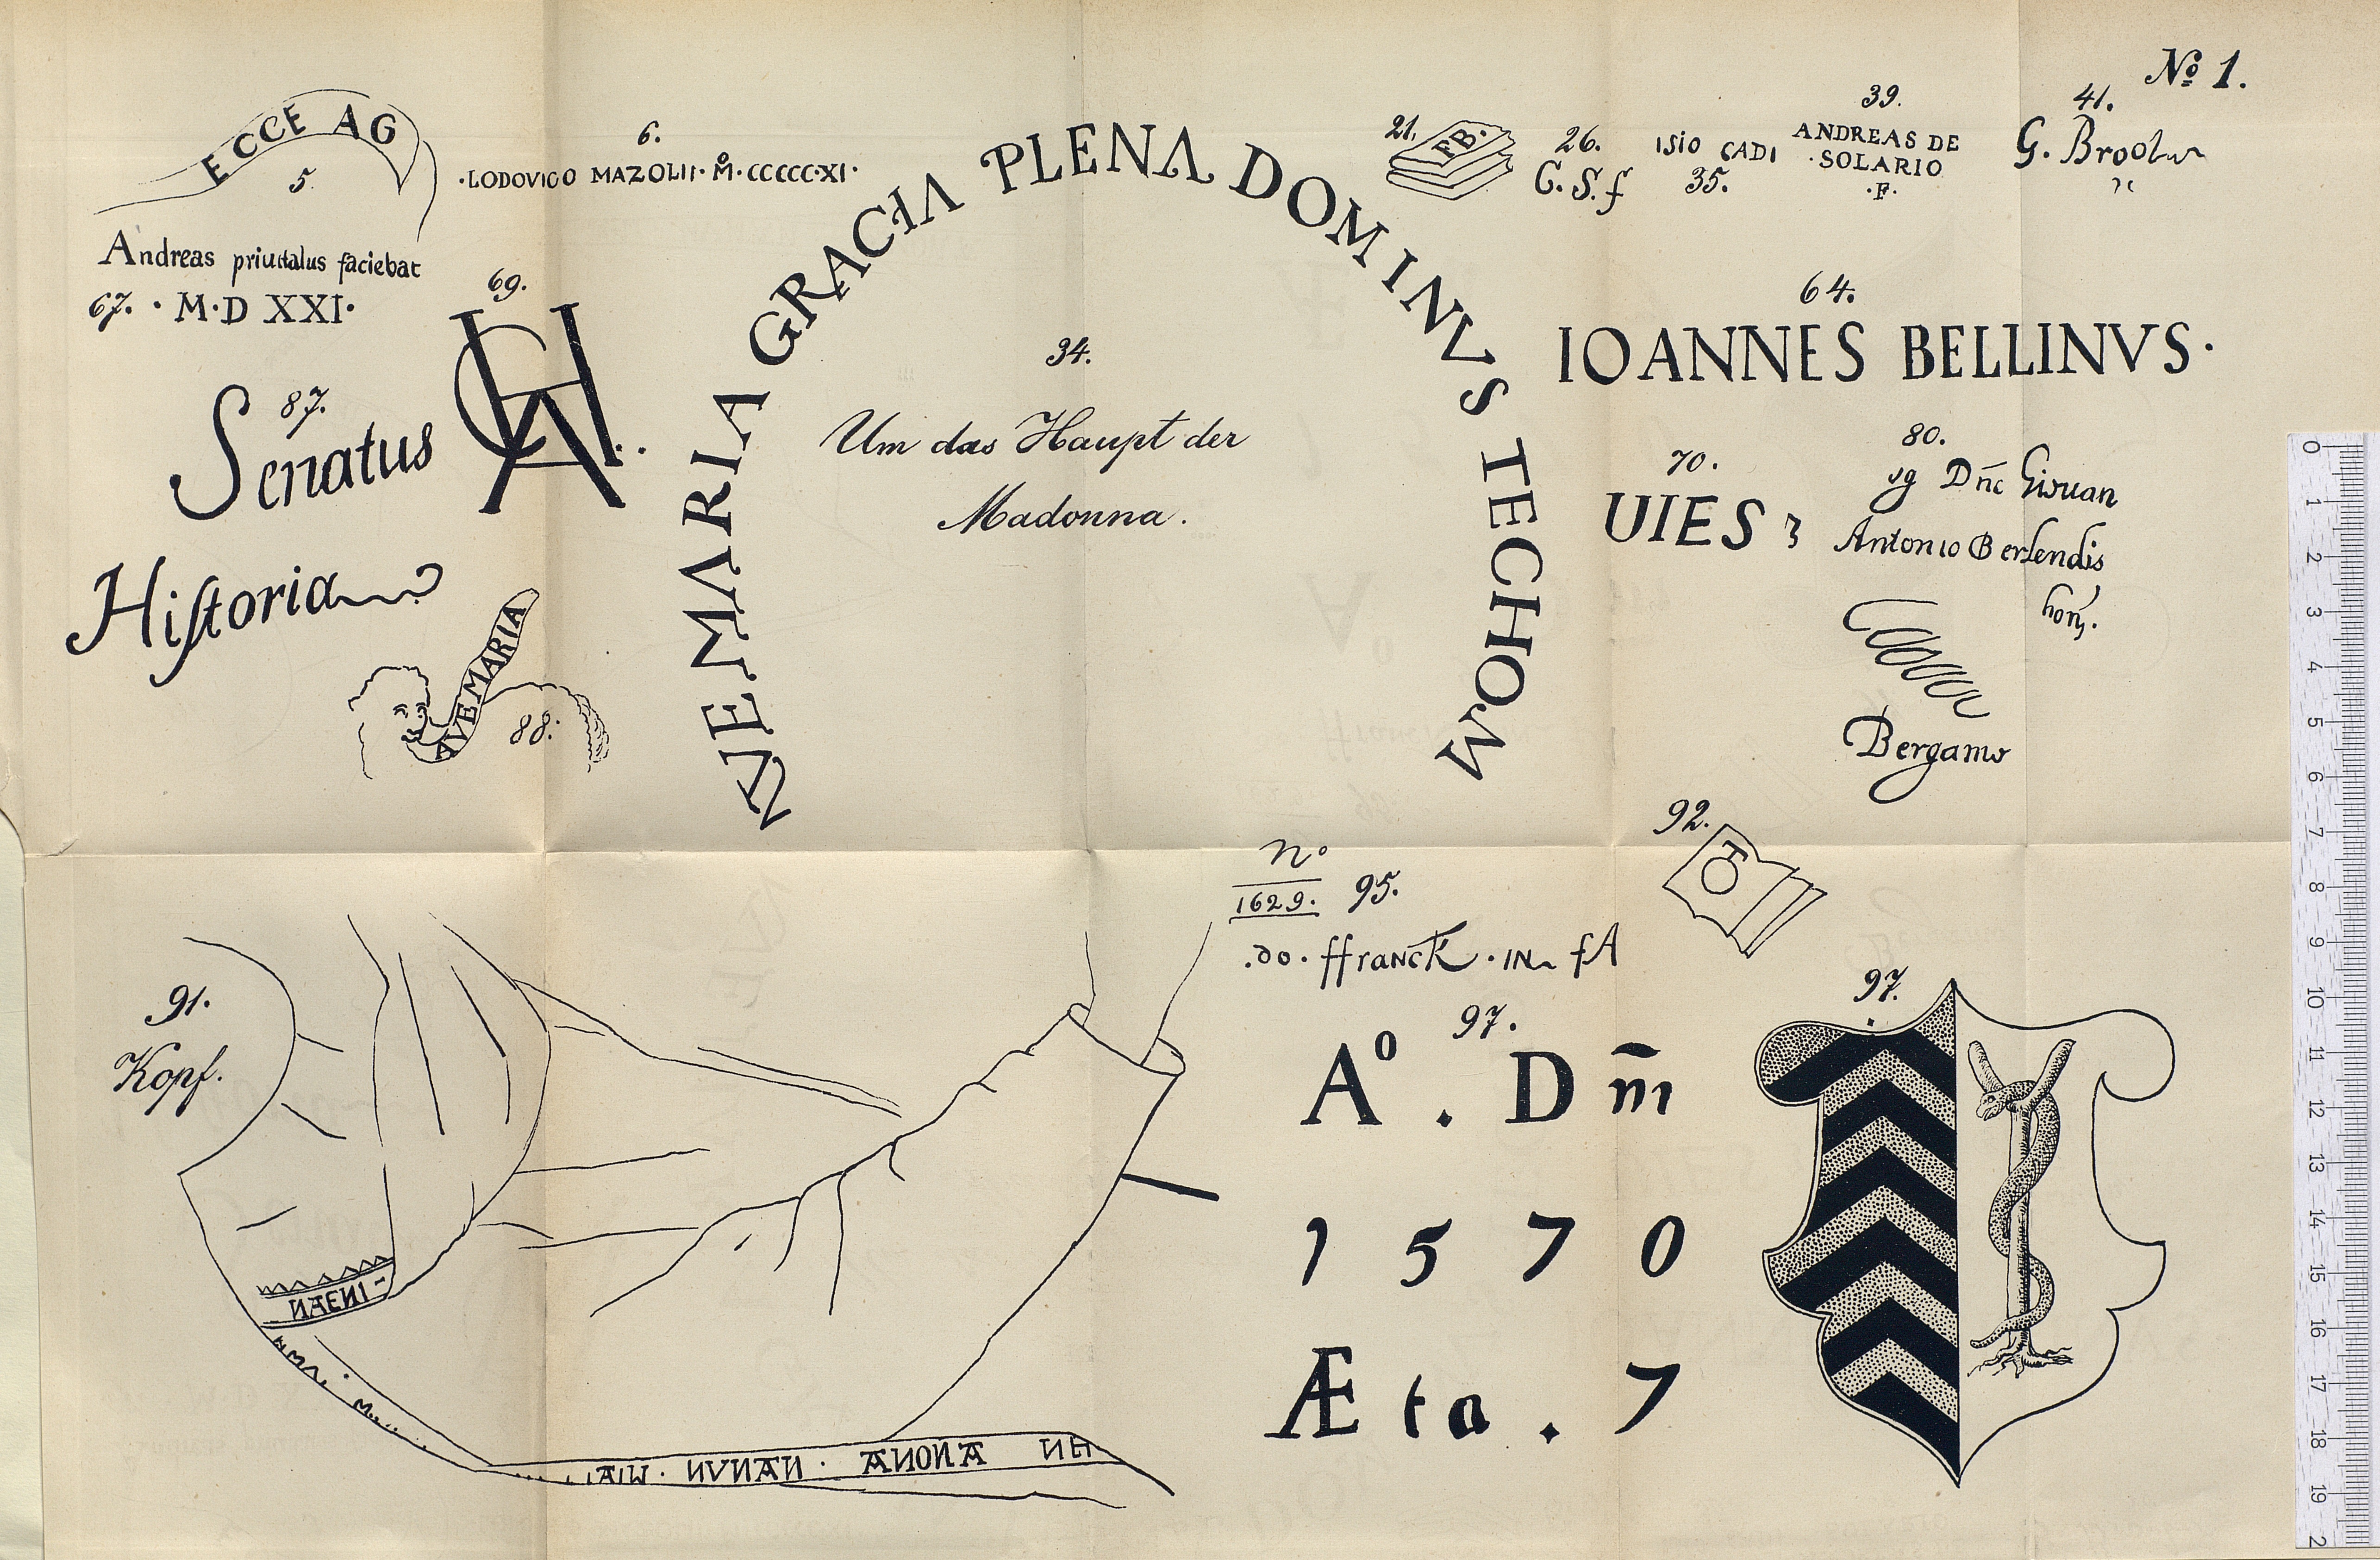 Nº 1.
ECCE AG
5.
6.
·LODOVICO MAZOLII· M̊·CCCCC·XI·
AVE MARIA GRACIA PLENA DOMINVS TECHOM
34.
Um das Haupt der
Madonna.
21.
FB·
26.
C.S.f
ISIO CADI
35.
39.
ANDREAS DE
·SOLARIO
·F·
41.
G.
Andreas faciebat
67. · M·D XXI·
69.
CHA
64.
IOANNES BELLINVS·
87.
Senatus
Hiſtoria
88:
AVE MARIA
70.
UIES
80.
sg Dñc
Antonio Berlendis
Bergamo
92.
TO
nº
1629. 95.
.do· ffranck · IN fA
91.
Kopf.
97.
Aº . Dm̄
1570
Æta . 7
97.
ANONA
0
1
2
3
4
5
6
7
8
9
10
11
12
13
14
15
16
17
18
19
2